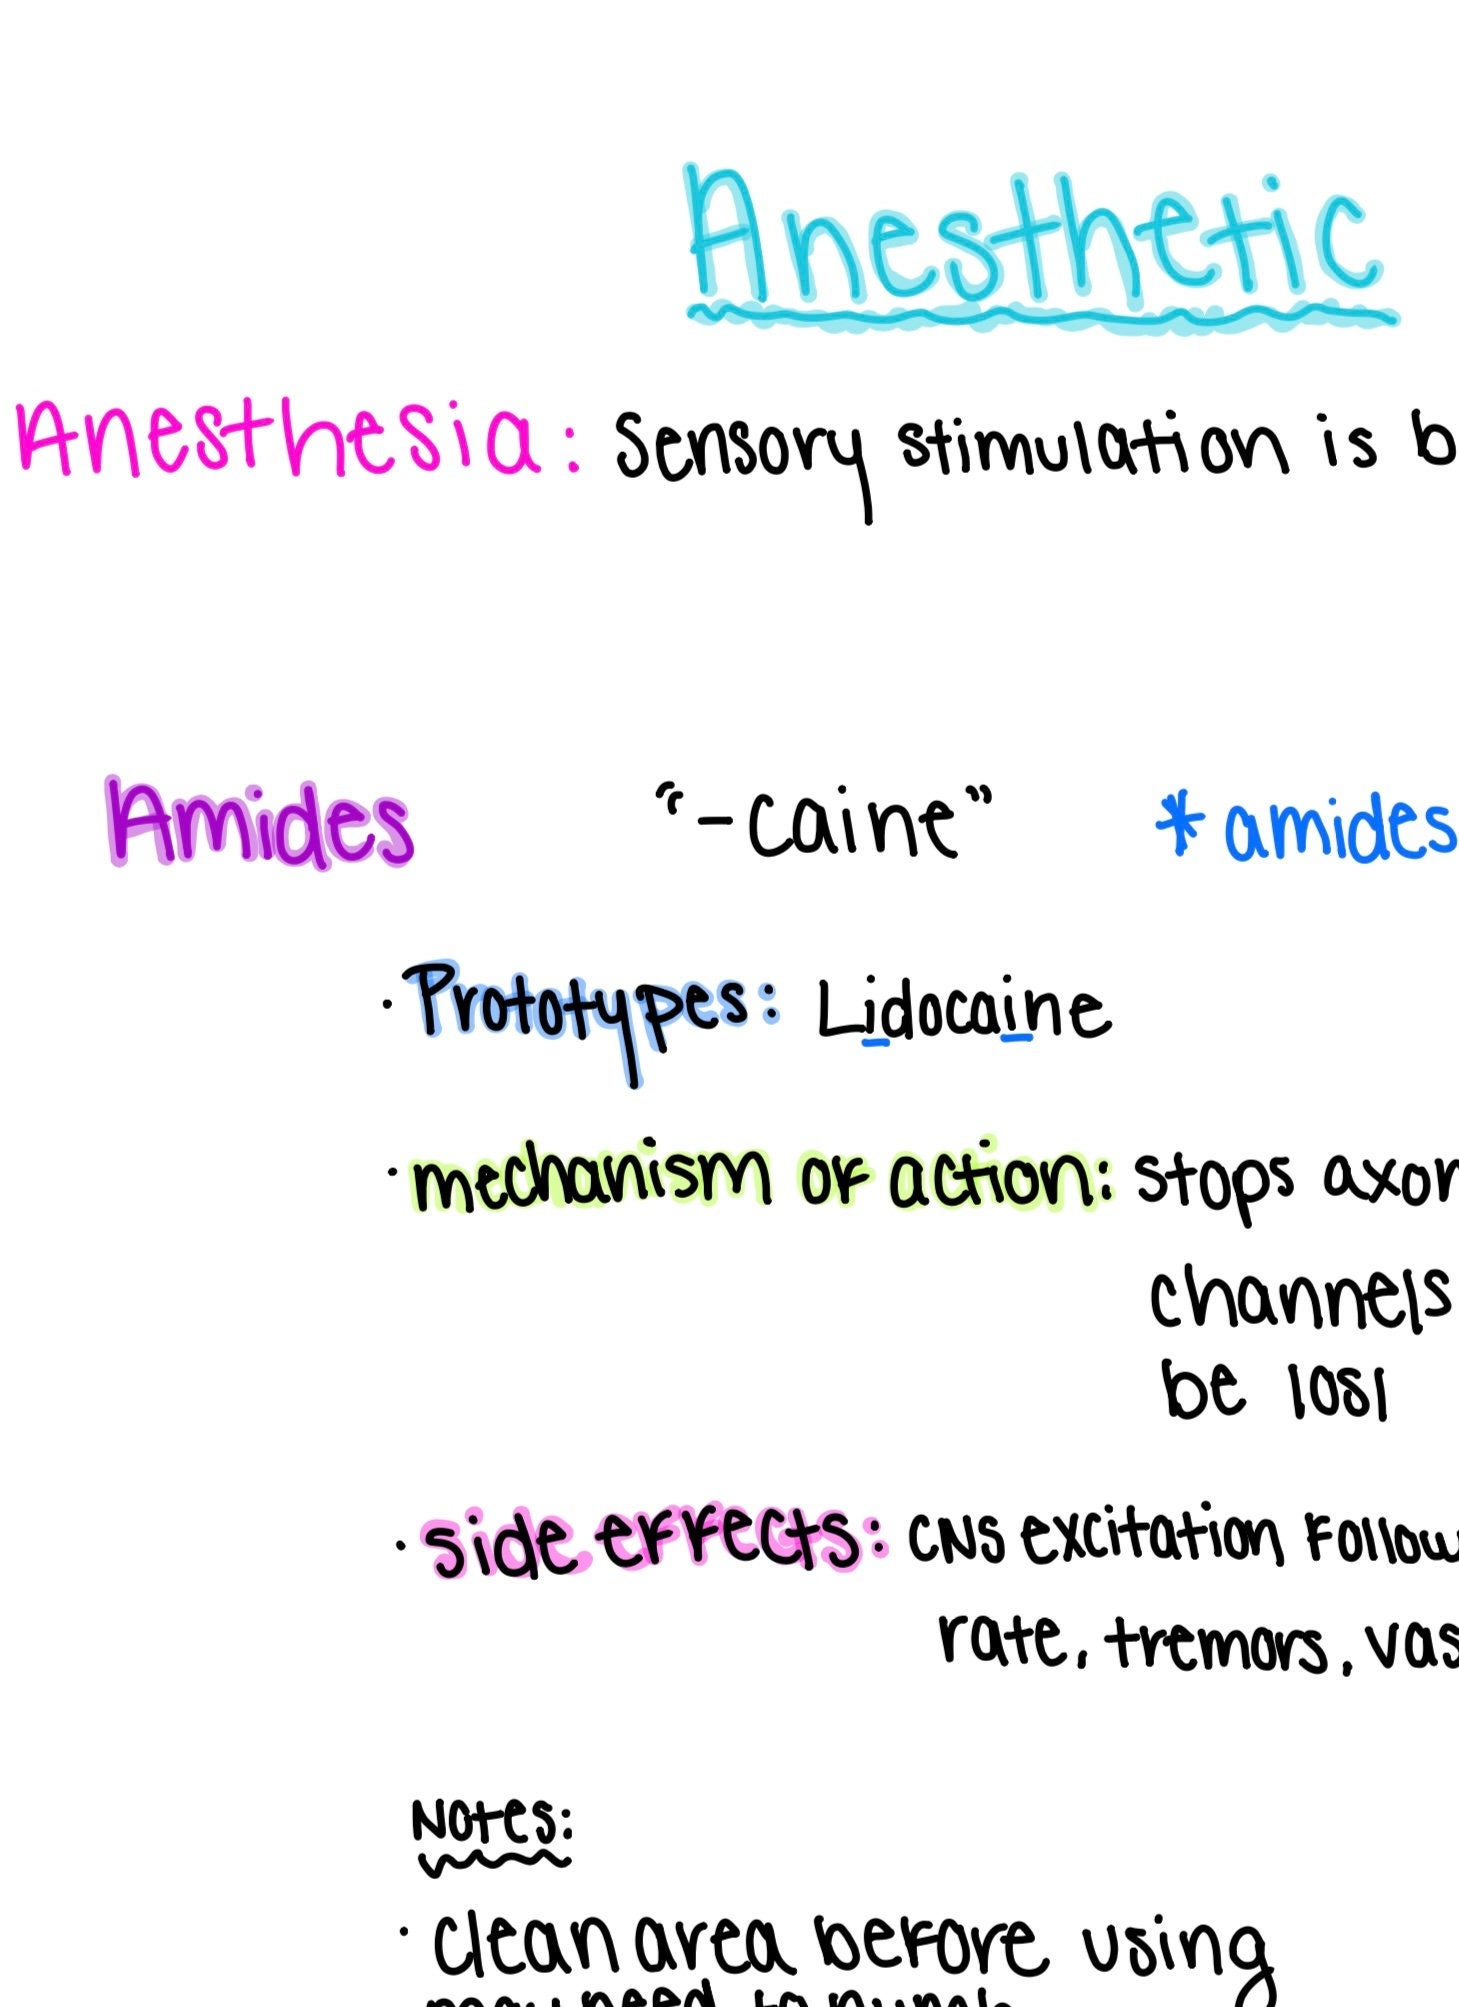 Anesthetic
Anesthesia: Sensory stimulation is b
Amides "-caine" *amides
· Prototypes: Lidocaine
· mechanism of action: stops axon
channels
be losl
· side effects: CNS excitation Follow
rate, tremors, vas
Notes:
· clean area before using
may need to numb